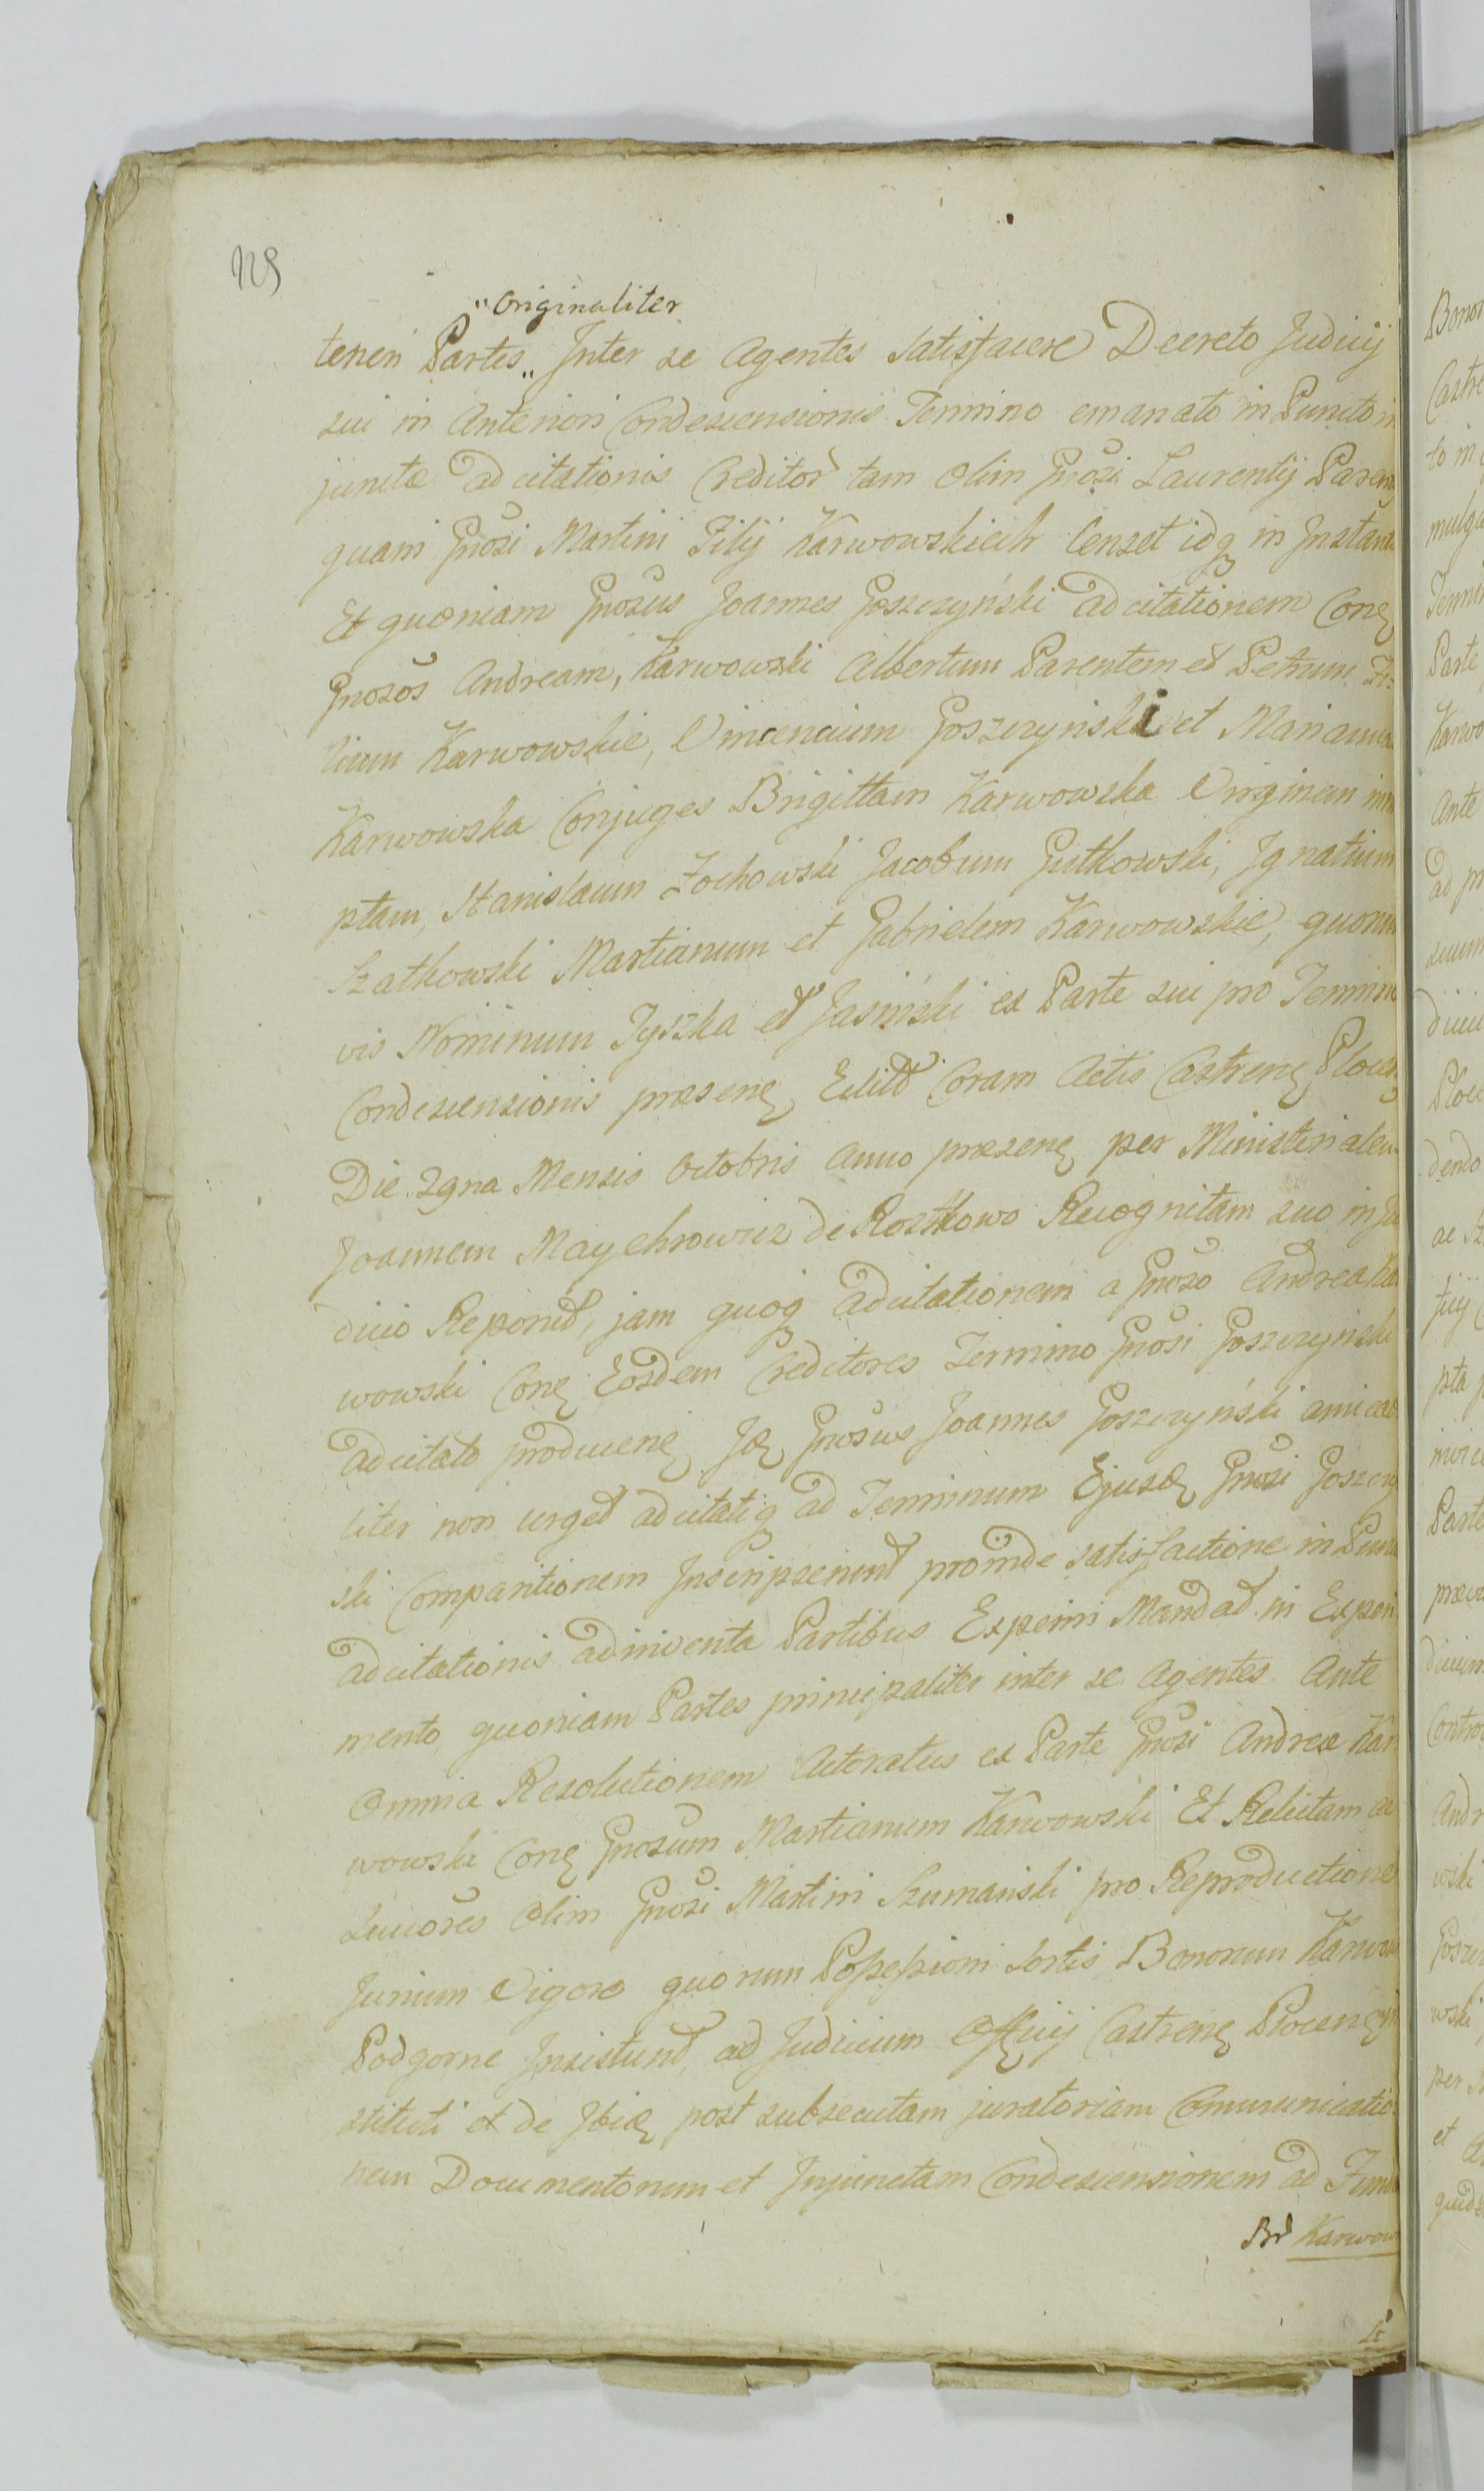 „Originaliter
teneri Partes „ Inter se Agentes Satisfacere Decreto Judicij
sui in Anteriori Condescensionis Termino emanato in Puncto in
junctæ Adcitationis Creditor tam olim Gnosi Laurentij Paren
quam Gnosi Martini Filij Karwowskich Censet idq in Instan
Et quoniam Gnosus Joannes Goszczyński Adcitationem Con
Gnosos Andream, Karwowski Albertum Parentem et Petrum Fi=
lium Karwowskie, Vincencium Goszczynski et Mariann
Karwowska Conjuges Brigittam Karwowska Virginem inn
ptam, Stanislaum Zochowski Jacobum Gutkowski, Ignatium
Szatkowski Martianum et Gabrielem Karwowskie, quorum
vis Nominum Tyszka et Jasiński ex Parte sui pro Termino
Condescensionis præsen Edit Coram Actis Castren Plocen
Die 29na Mensis Octobris Anno præsen per Ministerialem
Joannem Maychrowicz de Rostkowo Recognitam suo in Ju
dicio Reponit, jam quoq Adcitationem a Gnoso Andrea Kar
wowski Con Eosdem Creditores Termino Gnosi Goszczynski
Adcitato producen Gnosus Joannes Goszczyński amicab
liter non urget adcitatiq ad Terminum Ejusd Gnosi Goszczy
ski Comparitionem Inscripserunt proinde satisfactione in Punc
adcitationis adinventa Partibus Experiri Mandat in Experi
mento, quoniam Partes principaliter inter se Agentes Ante
Omnia Resolutionem Actoratus ex Parte Gnosi Andreæ Kar
wowski Con Gnosum Martianum Karwowski Et Relictam ac
Suuores Olim Gnosi Martini Szumanski pro Reproductione
Jurium Vigore quorum Possessioni Sortis Bonorum Karwow
Podgorne Insistunt, ad Judicium Offcij Castren Plocen in
stituti et de Ibid post subsecutam juratoriam Comunicatio
nem Documentorum et Injunctam Condescensionem ad Fund
Bd Karwow